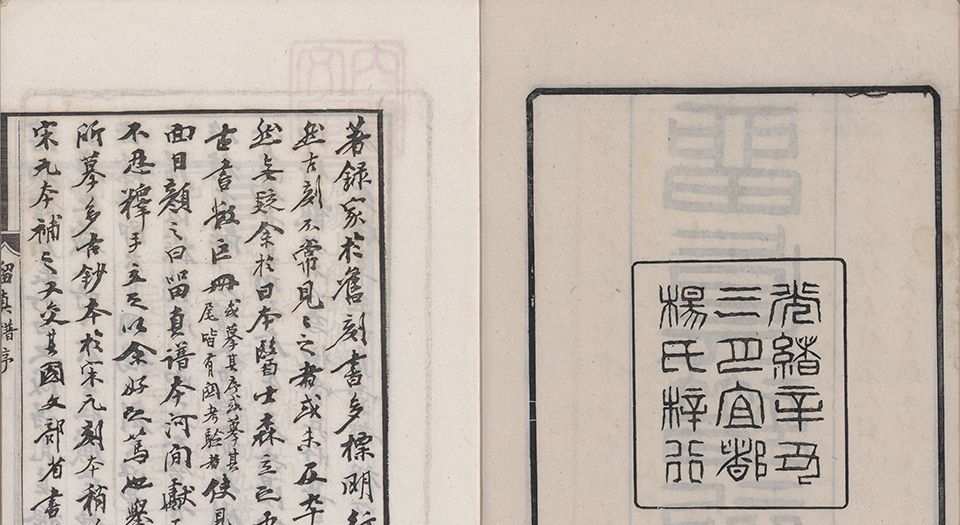 光緒辛丑
三月宜都
楊氏梓行
著録家於舊刻書多標明行
然古刻不常見〻之者或未及卒
然無疑余於日本醫士森立之
古書數巨冊或摹其序或摹其尾皆有関考驗者使見
面目顏之曰留真譜本河間獻
不忍釋手立之以余好之篤也舉
所摹多古鈔本於宋元刻本稍
宋元本補之又交其國文部省書
留真譜序